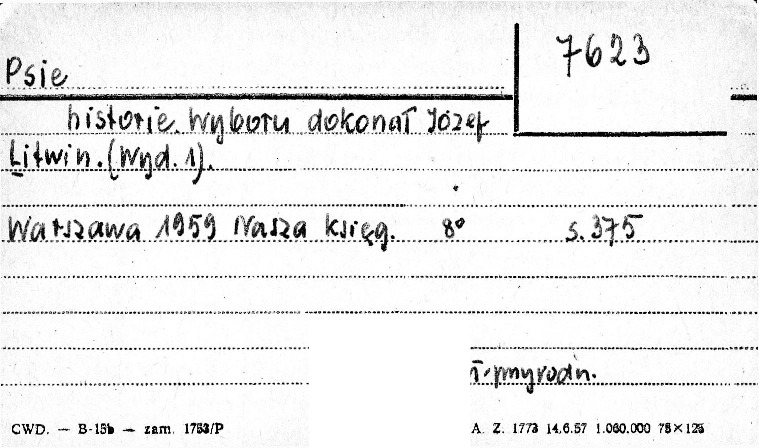 7623
Psie
historie. Wyboru dokonał Józef
Litwin. (Wyd. 1).
Warszawa 1959 Nasza księg. 8° s. 375
ł-przyrodn.
CWD. — B-15b — zam. 1753/P
A. Z. 1773 14.6.57 1.060.000 75×125